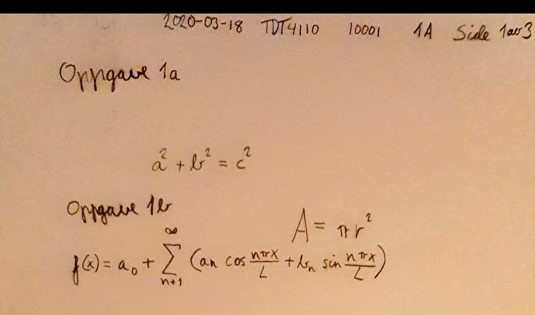 2020-03-18 TDT4110 10001 1A Side 1 av 3
Oppgave 1a
a² + b² = c²
Oppgave 1b
A = πr²
f(x) = a₀ + ∞ ∑ n+1 (an cos nπx/L + bₙ sin nπx/L)